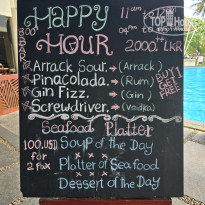 HAPPY HOUR
11am to
04pm to
2000/= LKR
Arrack Sour. → (Arrack)
Pinacolada. → (Rum)
Gin Fizz. → (Gin)
Screwdriver. → (Vodka)
BUY 1 GET 1 FREE
Seafood Platter
100.USD for 2 Pax
Soup of the Day
x x x x
Platter of Seafood
x x x x
Dessert of the Day